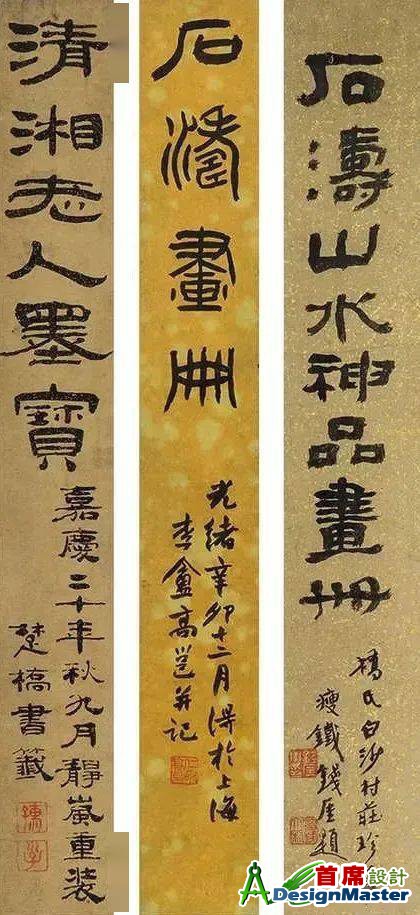 清湘老人墨寶
嘉慶二十年秋九月靜嵐重裝
楚橋書籤
石濤畫冊
光緒辛卯十二月得於上海
李盦高邕并記
石濤山水神品畫冊
橋氏白沙村莊珍
瘦鐵錢厓題
首席設計
ADesignMaster